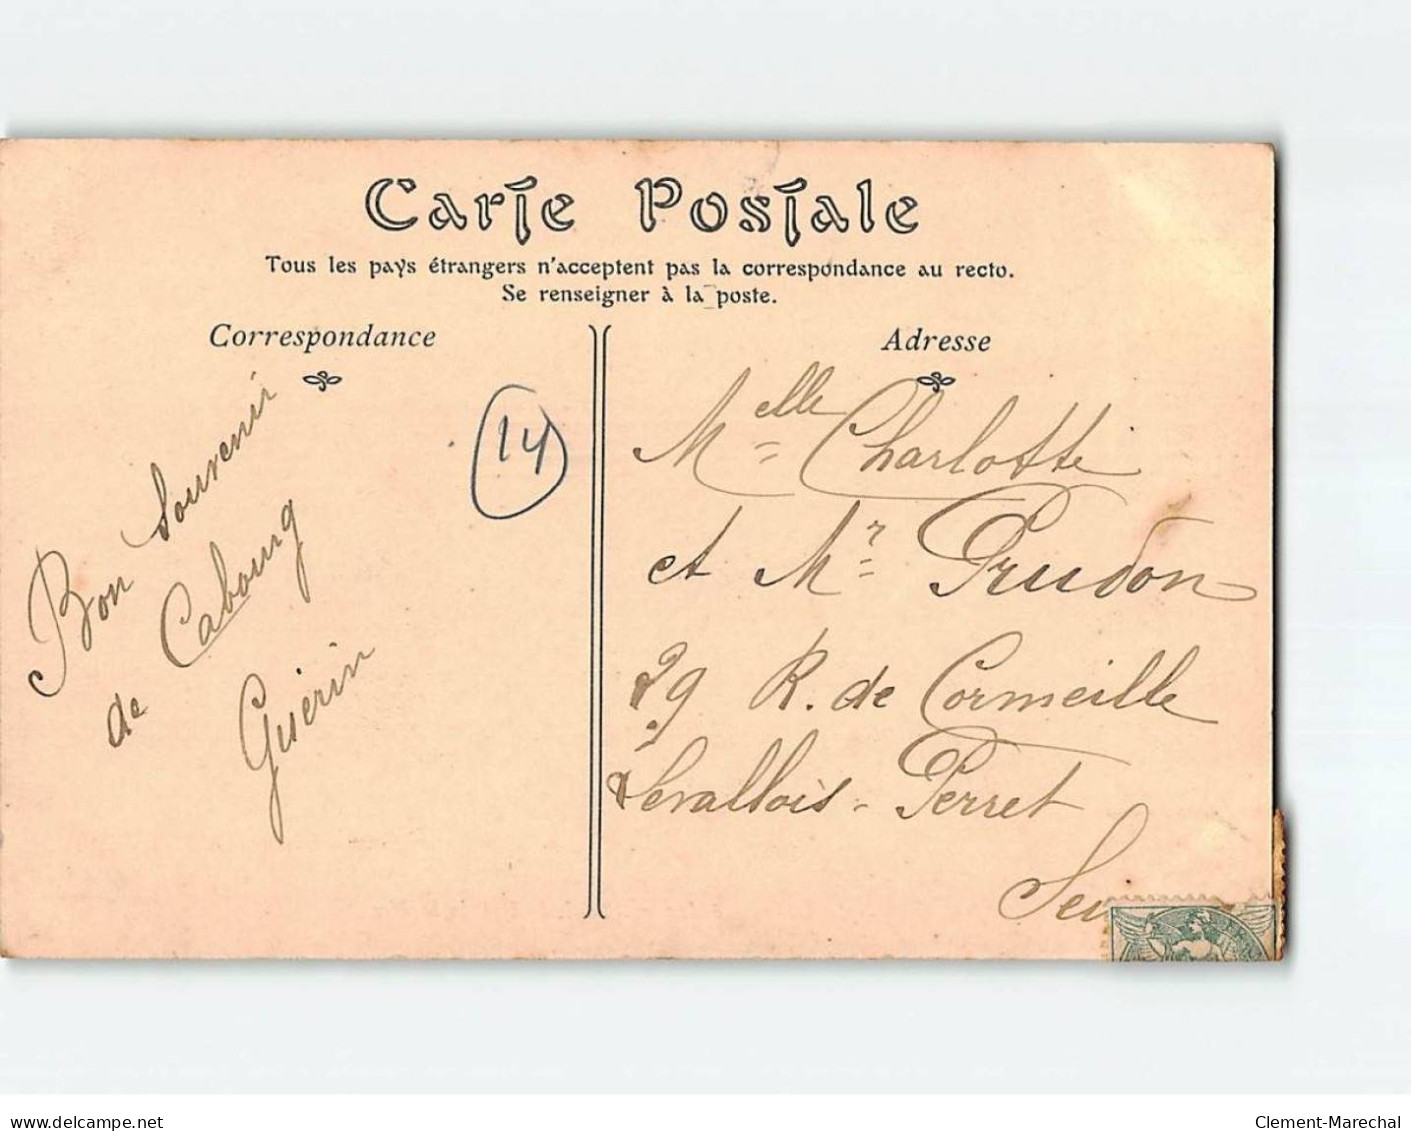 Carte Postale
Tous les pays étrangers n'acceptent pas la correspondance au recto.
Se renseigner à la poste.
Correspondance
Bon Souvenir
de Cabourg
Guérin
14
Adresse
Melle Charlotte
et Mr Prudon
29 R. de Cormeille
Levallois-Perret
delcampe.net
Clement-Marechal